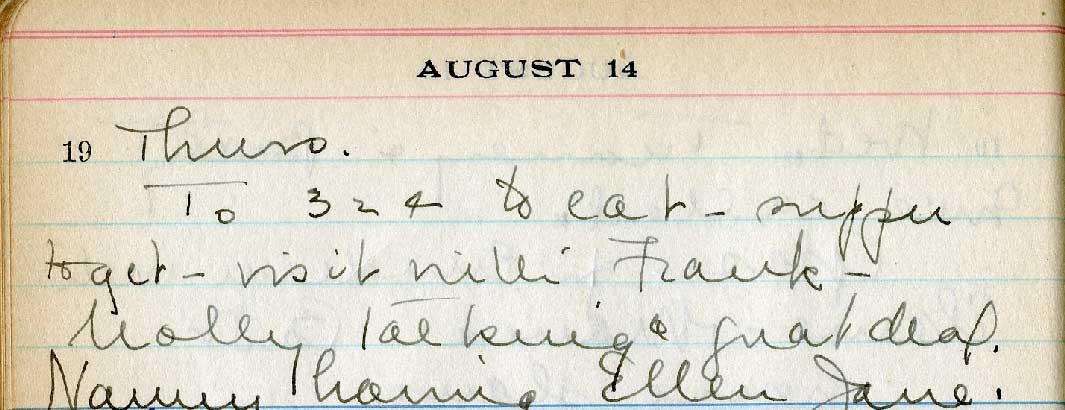 AUGUST 14
19 Thurs.
To 324 to eat - supper
together - visit with Frank -
Molly talking a great deal.
Nanny Ellen Jane.